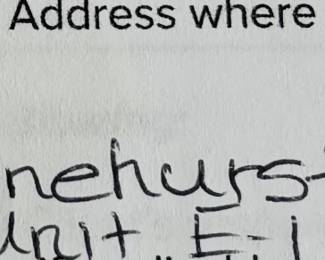 Address where
nehurs
Unit E-1